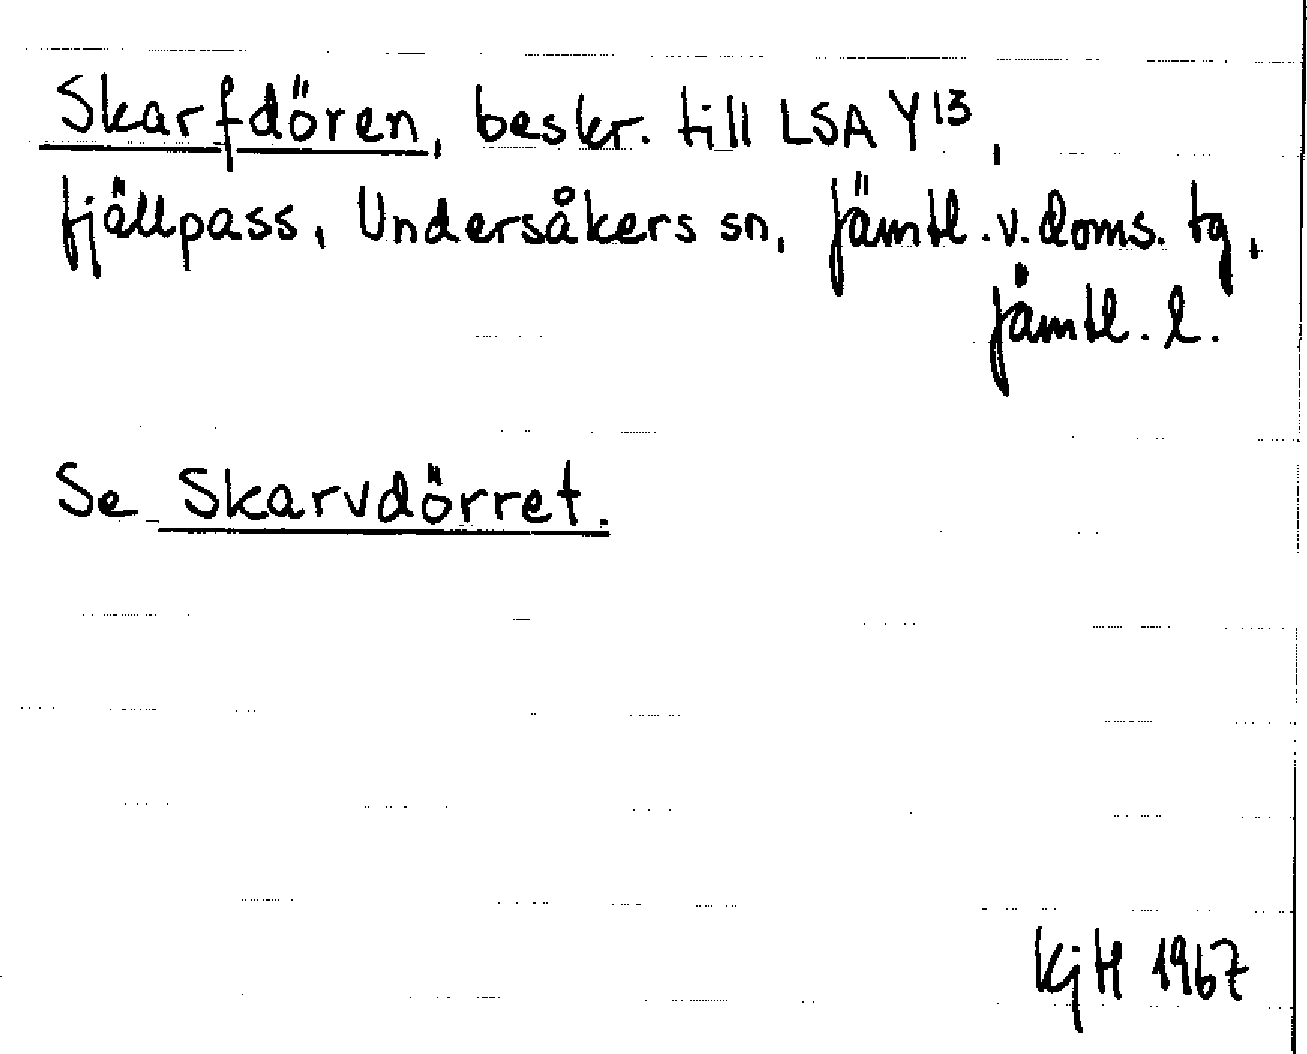 Skarfdören, beskr. till LSA Y13,
fjällpass, Undersåkers sn, Jämtl. v. doms. tg,
Jämtl. l.
Se Skarvdörret.
KjH 1967